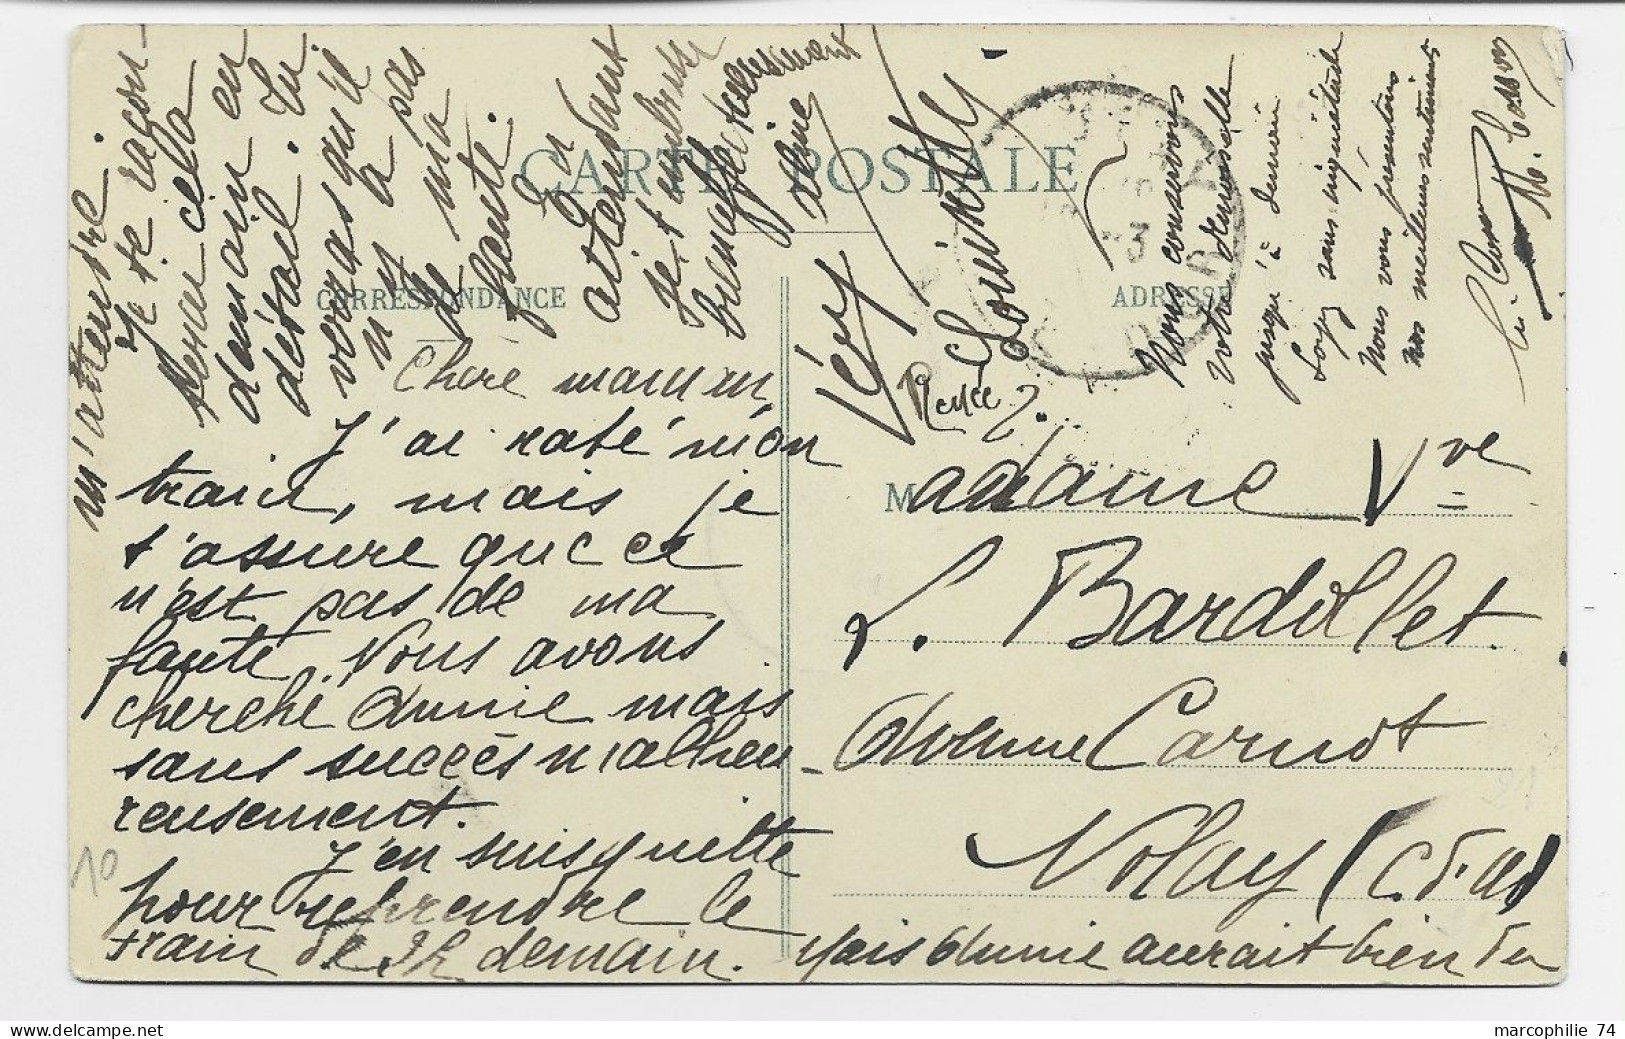 CARTE POSTALE
CORRESPONDANCE
ADRESSE
Chère maman,
J'ai raté mon
train, mais je
t'assure que ce
n'est pas de ma
faute. Nous avons
cherché Annie mais
sans succès malheu-
reusement.
J'en suis quitte
pour reprendre le
train de 2h demain.
Mais Annie aurait bien du
m'attendre.
Je te racon-
terai cela
demain en
détail. Tu
verras qu'il
n'y a pas
de ma
faute.
En
attendant
je t'embrasse
bien affectueusement
Renée
Nous conservons
votre demoiselle
jusqu'à demain
Soyez sans inquiétude
Nous vous présentons
nos meilleurs sentiments
Madame Vve
L. Bardollet
Avenue Carnot
Nolay (C. d'Or)
10
marcophilie 74